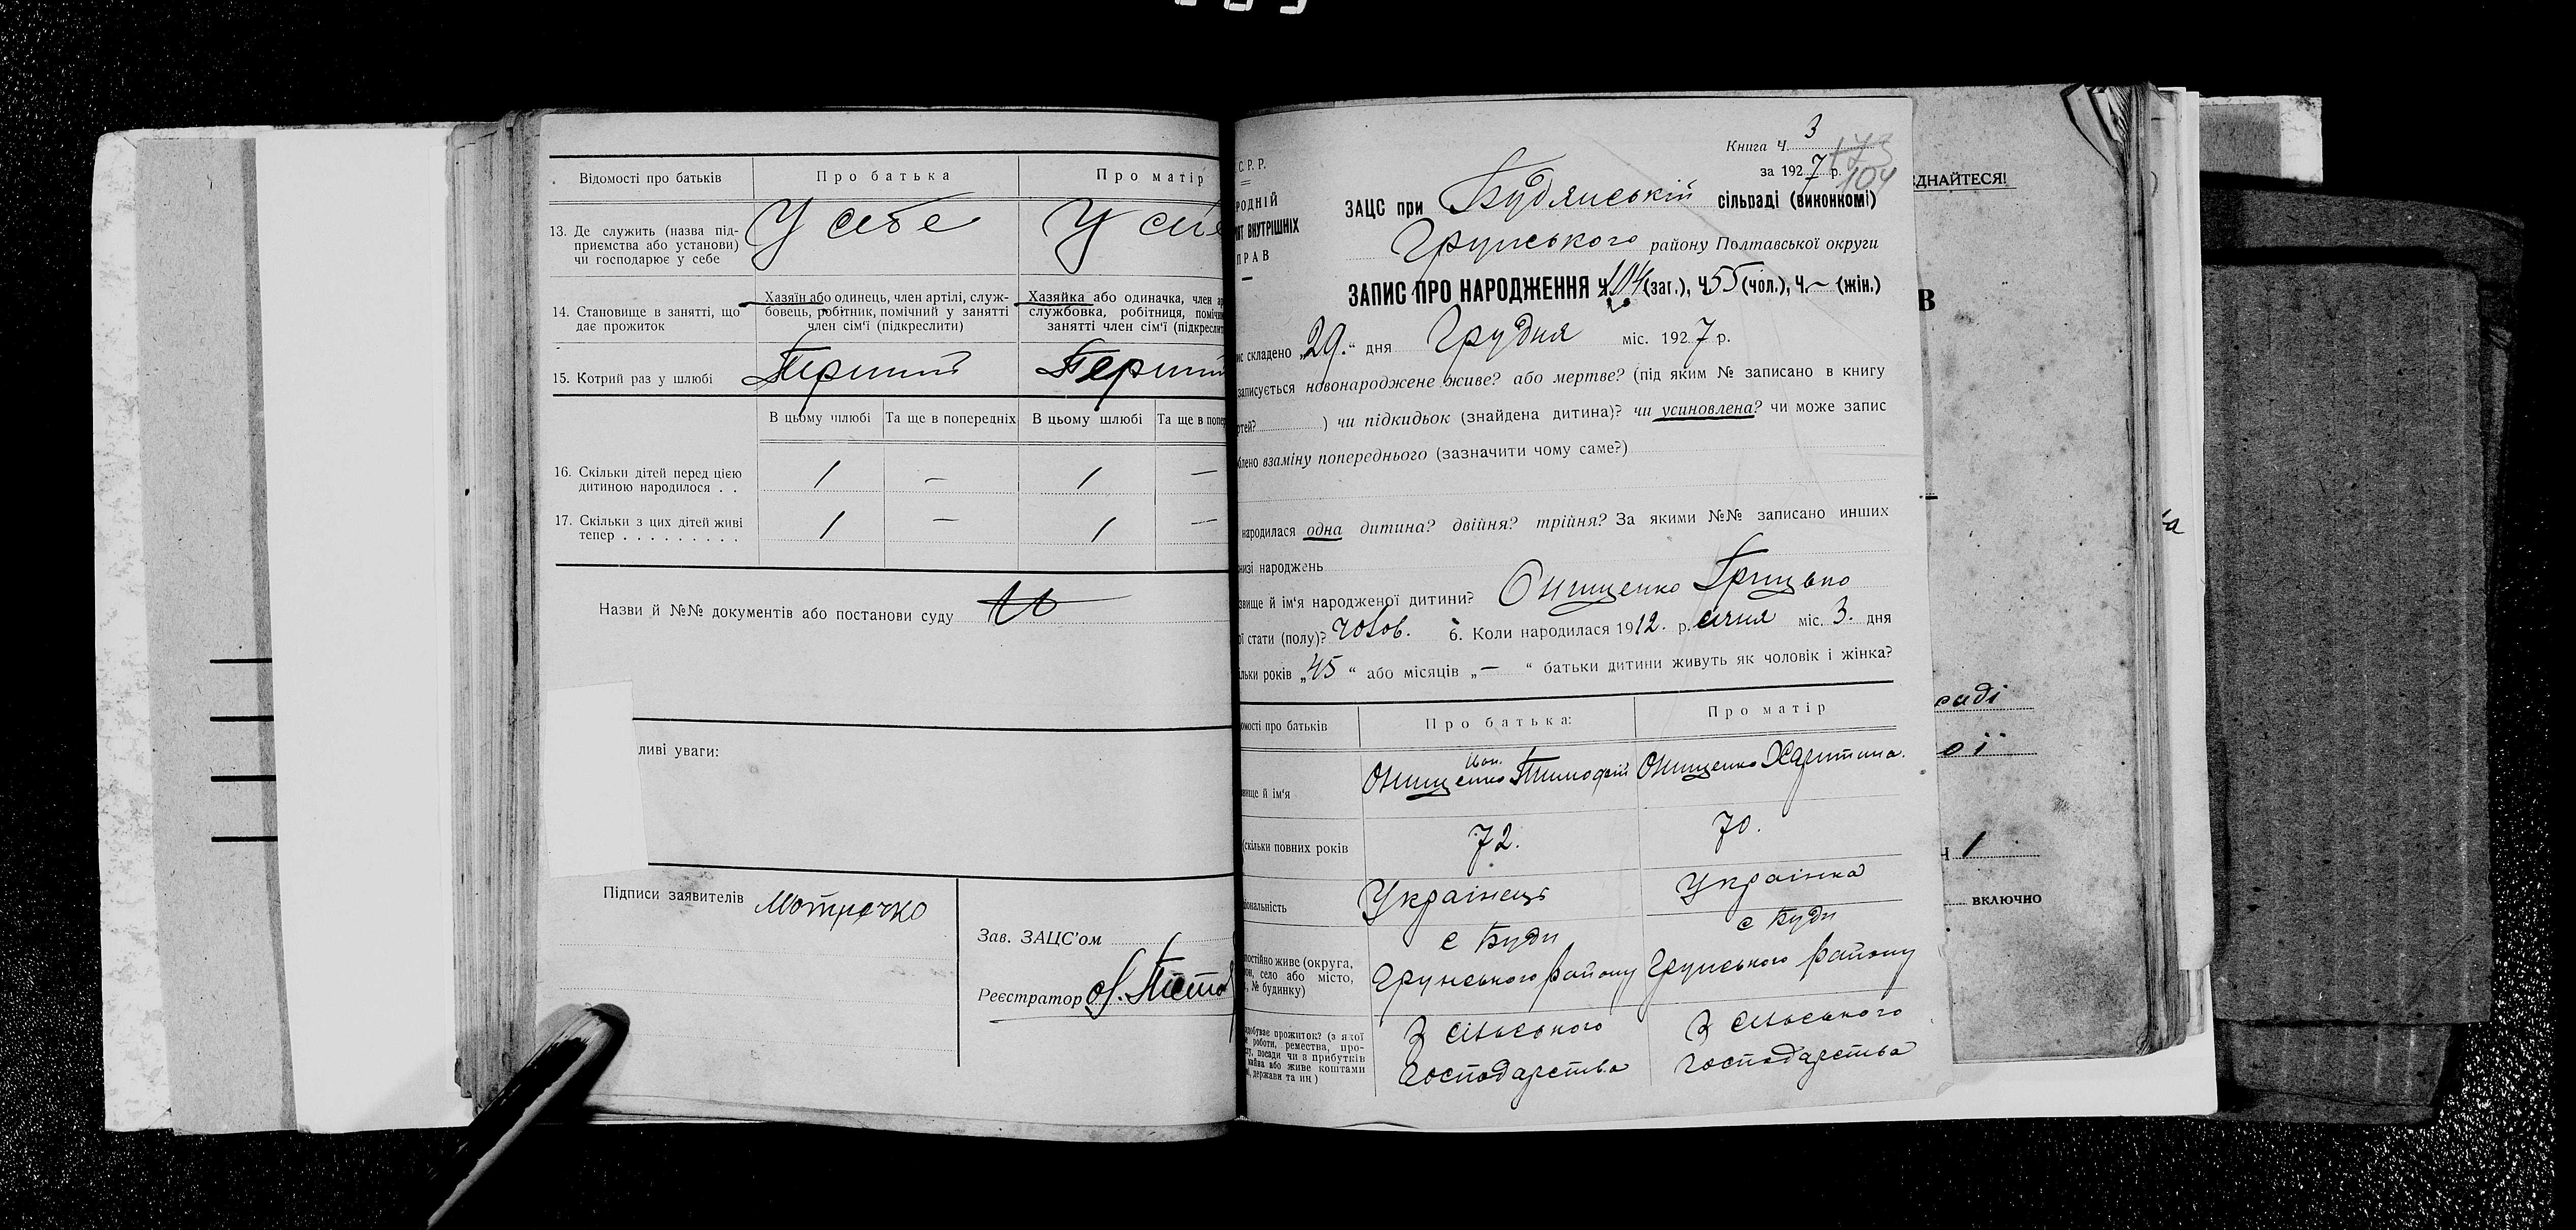 Відомості про батьків
Про батька
Про матір
13. Де служить (назва під-
приємства або установи)
чи господарює у себе
У себе
У
14. Становище в занятті, що
дає прожиток
Хазяїн або одинець, член артілі, служ-
бовець, робітник, помічний у занятті
член сім'ї (підкреслити)
Хазяйка або одиначка, член
службовка, робітниця,
занятті член сім'ї
15. Котрий раз у шлюбі
Перший
В цьому шлюбі
Та ще в попередніх
В цьому шлюбі
Та ще в
16. Скільки дітей перед цією
дитиною народилося . .
1 — 1 —
17. Скільки з цих дітей живі
тепер . . . . . . . . .
1 — 1 —
Назви й №№ документів або постанови суду
ливі уваги:
Підписи заявителів
Зав. ЗАЦС'ом
Реєстратор
С. Р. Р.
РОДНІЙ
ВНУТРІШНІХ
ПРАВ
Книга Ч. 3
за 1927 р.
104
ЗАЦС при Будянській сільраді (виконкомі)
Грунського району Полтавської округи
ЗАПИС ПРО НАРОДЖЕННЯ Ч. 104 (заг.), Ч. 55 (чол.), Ч. — (жін.)
складено „29.“ дня Грудня міс. 1927 р.
записується новонароджене живе? або мертве? (під яким № записано в книгу
) чи підкидьок (знайдена дитина)? чи усиновлена? чи може запис
взаміну попереднього (зазначити чому саме?)
народилася одна дитина? двійня? трійня? За якими №№ записано инших
народжень
й ім'я народженої дитини? Онищенко Грицько
стати (полу)? чолов. 6. Коли народилася 1912. р. січня міс. 3. дня
років „45“ або місяців „—“ батьки дитини живуть як чоловік і жінка?
про батьків
Про батька:
Про матір
й ім'я
Онищенко Тимофій
Онищенко Харитина.
(скільки повних років
72.
70.
Українець
Українка
постійно живе (округа,
село або місто,
№ будинку)
с Буди
Грунського району
с Буди
Грунського району
прожиток? (з якої
роботи, ремества, про-
посади чи з прибутків
майна або живе коштами
держави та ин)
З сільського
господарства
З сільського
господарства
ЄДНАЙТЕСЯ!
В
раді
ої
1
включно